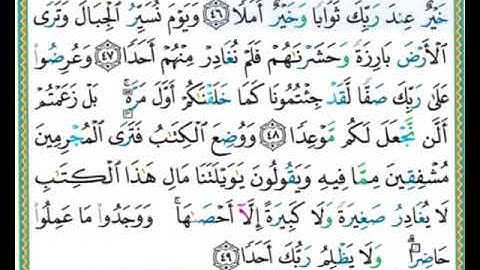 خَيْرٌ عِندَ رَبِّكَ ثَوَابًا وَخَيْرٌ أَمَلًا ﴿٤٦﴾ وَيَوْمَ نُسَيِّرُ ٱلْجِبَالَ وَتَرَى
ٱلْأَرْضَ بَارِزَةً وَحَشَرْنَٰهُمْ فَلَمْ نُغَادِرْ مِنْهُمْ أَحَدًا ﴿٤٧﴾ وَعُرِضُوا۟
عَلَىٰ رَبِّكَ صَفًّا لَّقَدْ جِئْتُمُونَا كَمَا خَلَقْنَٰكُمْ أَوَّلَ مَرَّةٍۭ ۚ بَلْ زَعَمْتُمْ
أَلَّن نَّجْعَلَ لَكُم مَّوْعِدًا ﴿٤٨﴾ وَوُضِعَ ٱلْكِتَٰبُ فَتَرَى ٱلْمُجْرِمِينَ
مُشْفِقِينَ مِمَّا فِيهِ وَيَقُولُونَ يَٰوَيْلَتَنَا مَالِ هَٰذَا ٱلْكِتَٰبِ
لَا يُغَادِرُ صَغِيرَةً وَلَا كَبِيرَةً إِلَّآ أَحْصَىٰهَا ۚ وَوَجَدُوا۟ مَا عَمِلُوا۟
حَاضِرًا ۗ وَلَا يَظْلِمُ رَبُّكَ أَحَدًا ﴿٤٩﴾